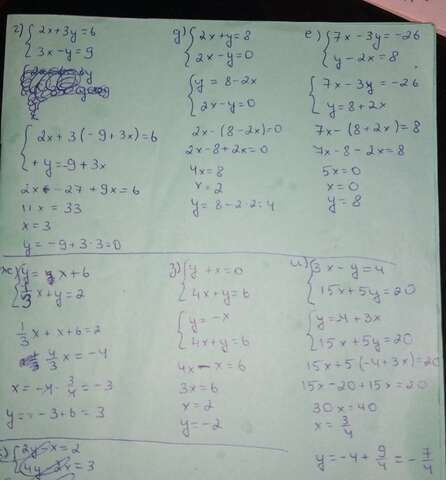 г) { 2x+3y=6
3x-y=9
{ 2x+3(-9+3x)=6
+y=-9+3x
2x -27+9x=6
11x=33
x=3
y=-9+3·3=0
д) { 2x+y=8
2x-y=0
{ y=8-2x
2x-y=0
2x-(8-2x)=0
2x-8+2x=0
4x=8
x=2
y=8-2·2=4
е) { 7x-3y=-26
y-2x=8
{ 7x-3y=-26
y=8+2x
7x-(8+2x)=8
7x-8-2x=8
5x=0
x=0
y=8
ж) { y= x+6
1/3 x+y=2
1/3 x+x+6=2
4/3 x=-4
x=-4·3/4=-3
y=-3+6=3
з) { y+x=0
4x+y=6
{ y=-x
4x+y=6
4x-x=6
3x=6
x=2
y=-2
и) { 3x-y=4
15x+5y=20
{ y=-4+3x
15x+5y=20
15x+5(-4+3x)=20
15x-20+15x=20
30x=40
x=3/4
y=-4+9/4=-7/4
{ 2y-x=2
4y-2x=3